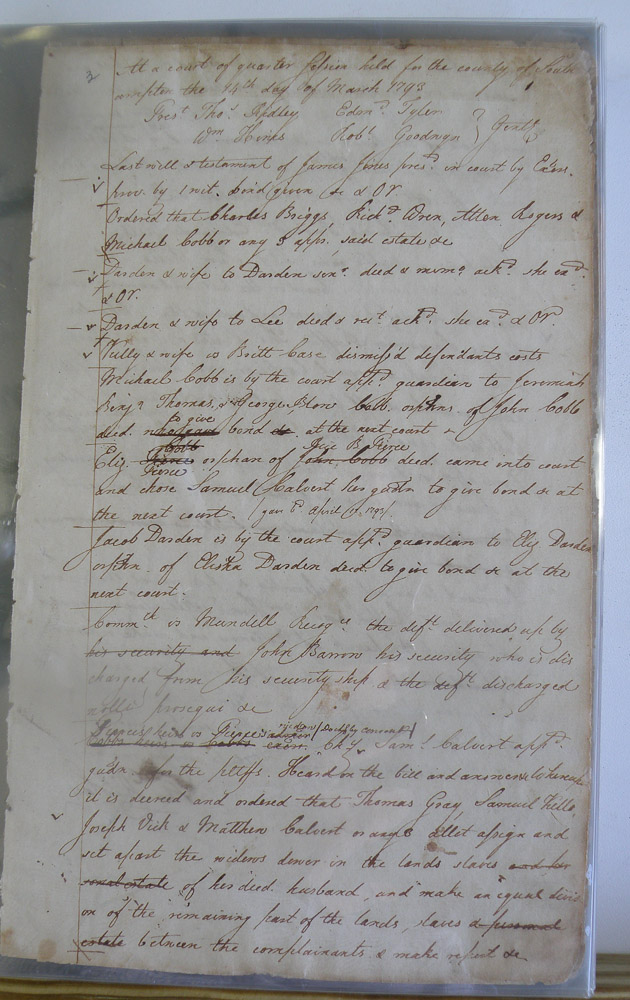 At a court of quarter Session held for the county of South
ampton the 14th day of March 1793
Prest Thos Ridley Edmd Tyler
Wm Hines Robt Goodwyn } Gentn
Last will & testament of James Jones prest in court by Exors.
prov. by 1 wit. bond given &c & OR
Ordered that Charles Briggs Richd Wren, Allen Rogers &
Michael Cobb or any 3 appr. said estate &c
Darden & wife to Darden senr. deed & ackd. she exd.
& OR.
Darden & wife to Lee deed & rect ackd. she exd & OR.
& wife vs Britt Case dismiss'd defendants costs
Michael Cobb is by the court appd guardian to Jeremiah
Benja Thomas, & George Blow Cobb orphns. of John Cobb
deced. to give bond &c at the next court
Eliz. Pierce orphan of John Cobb deced. came into court
and chose Samuel Calvert her gardn to give bond &c at
the next court. April
Jacob Darden is by the court appd guardian to Eliz Darden
orphn. of Elisha Darden deced. to give bond &c at the
next court.
Commth vs Mundell Recogce the deft delivered up by
his security and John Barrow his security who is dis
charged from his security ship & the deft discharged
nolle prosequi &c
heirs vs Pierce's Chy Saml Calvert appd.
gudn for the pltffs. Heard on the bill and answers Whereupon
it is decreed and ordered that Thomas Gray Samuel Kello
Joseph Vick & Matthew Calvert or any 3 allot assign and
set apart the widows dower in the lands slaves and per
sonal estate of her deced. husband, and make an equal divisi
on of the remaining part of the lands, slaves & personal
estate between the complainants & make report &c